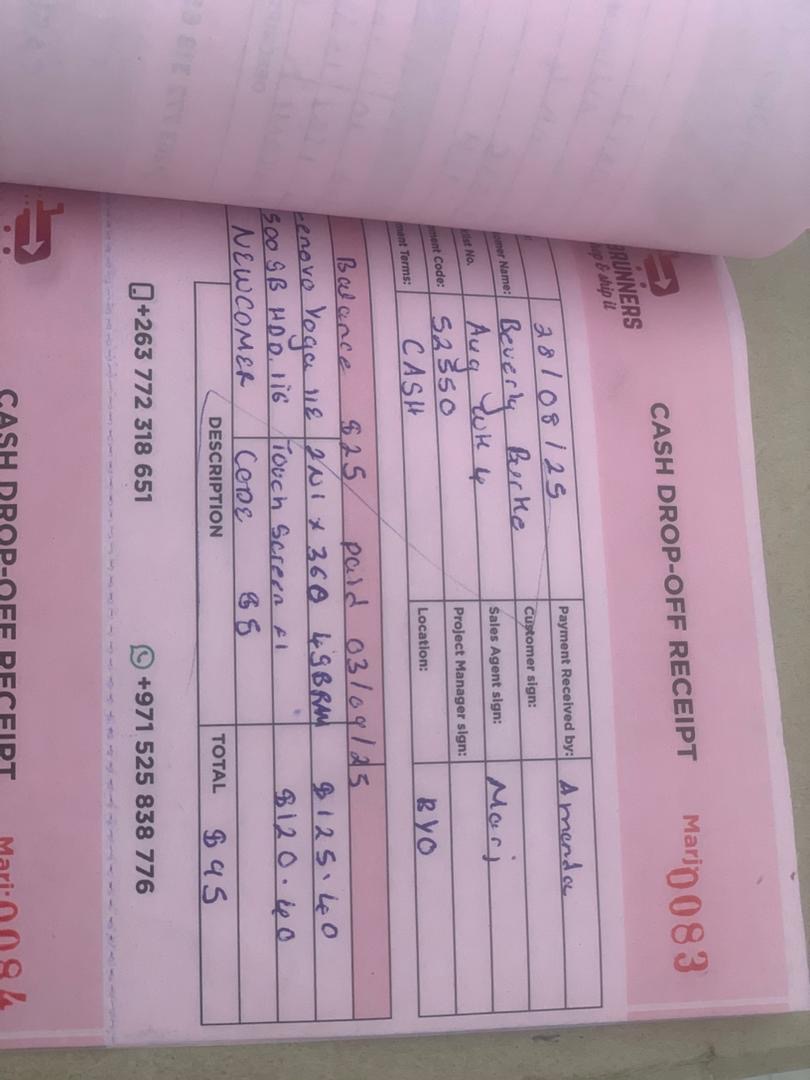 BRUNNERS
up & ship it
CASH DROP-OFF RECEIPT
Marj 0083
28/08/25
Payment Received by: Amanda
omer Name: Beverly
Customer sign:
No. Aug WK 4
Sales Agent sign: Marj
ment Code: S2350
Project Manager sign:
ment Terms: CASH
Location: BYO
Balance $25 paid 03/09/25
enovo Yoga 11E 2N1 x 360 4GBRAM $125.40
500GB HDD, 11.6 Touch Screen $120.40
NEWCOMER CODE $5
DESCRIPTION
TOTAL $95
+263 772 318 651
+971 525 838 776
CASH DROP-OFF RECEIPT
Marj 0084